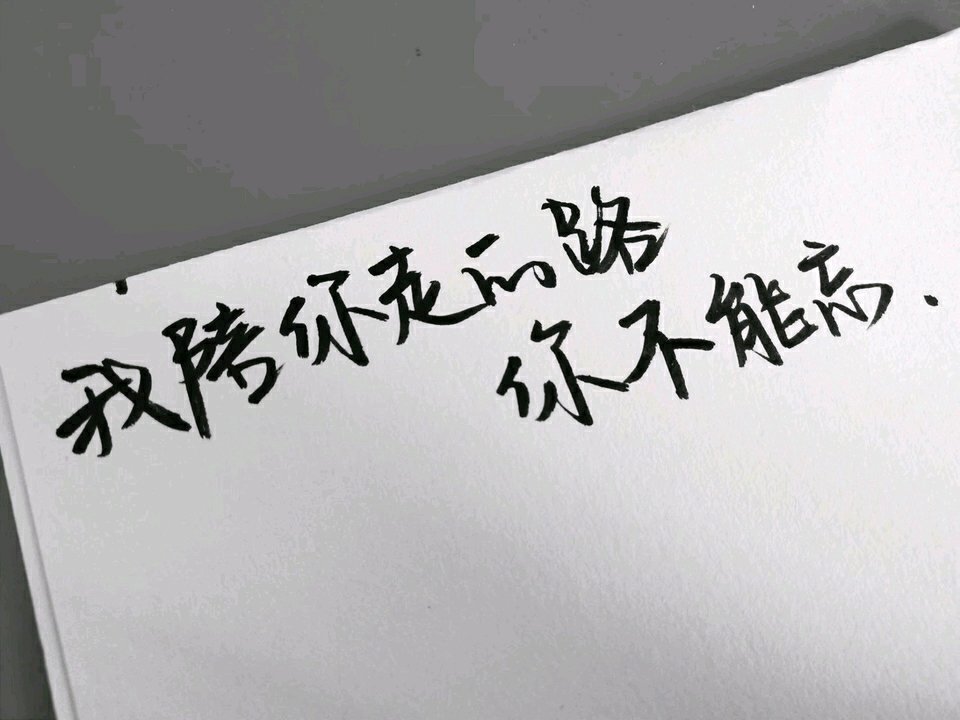 我陪你走的路
你不能忘.